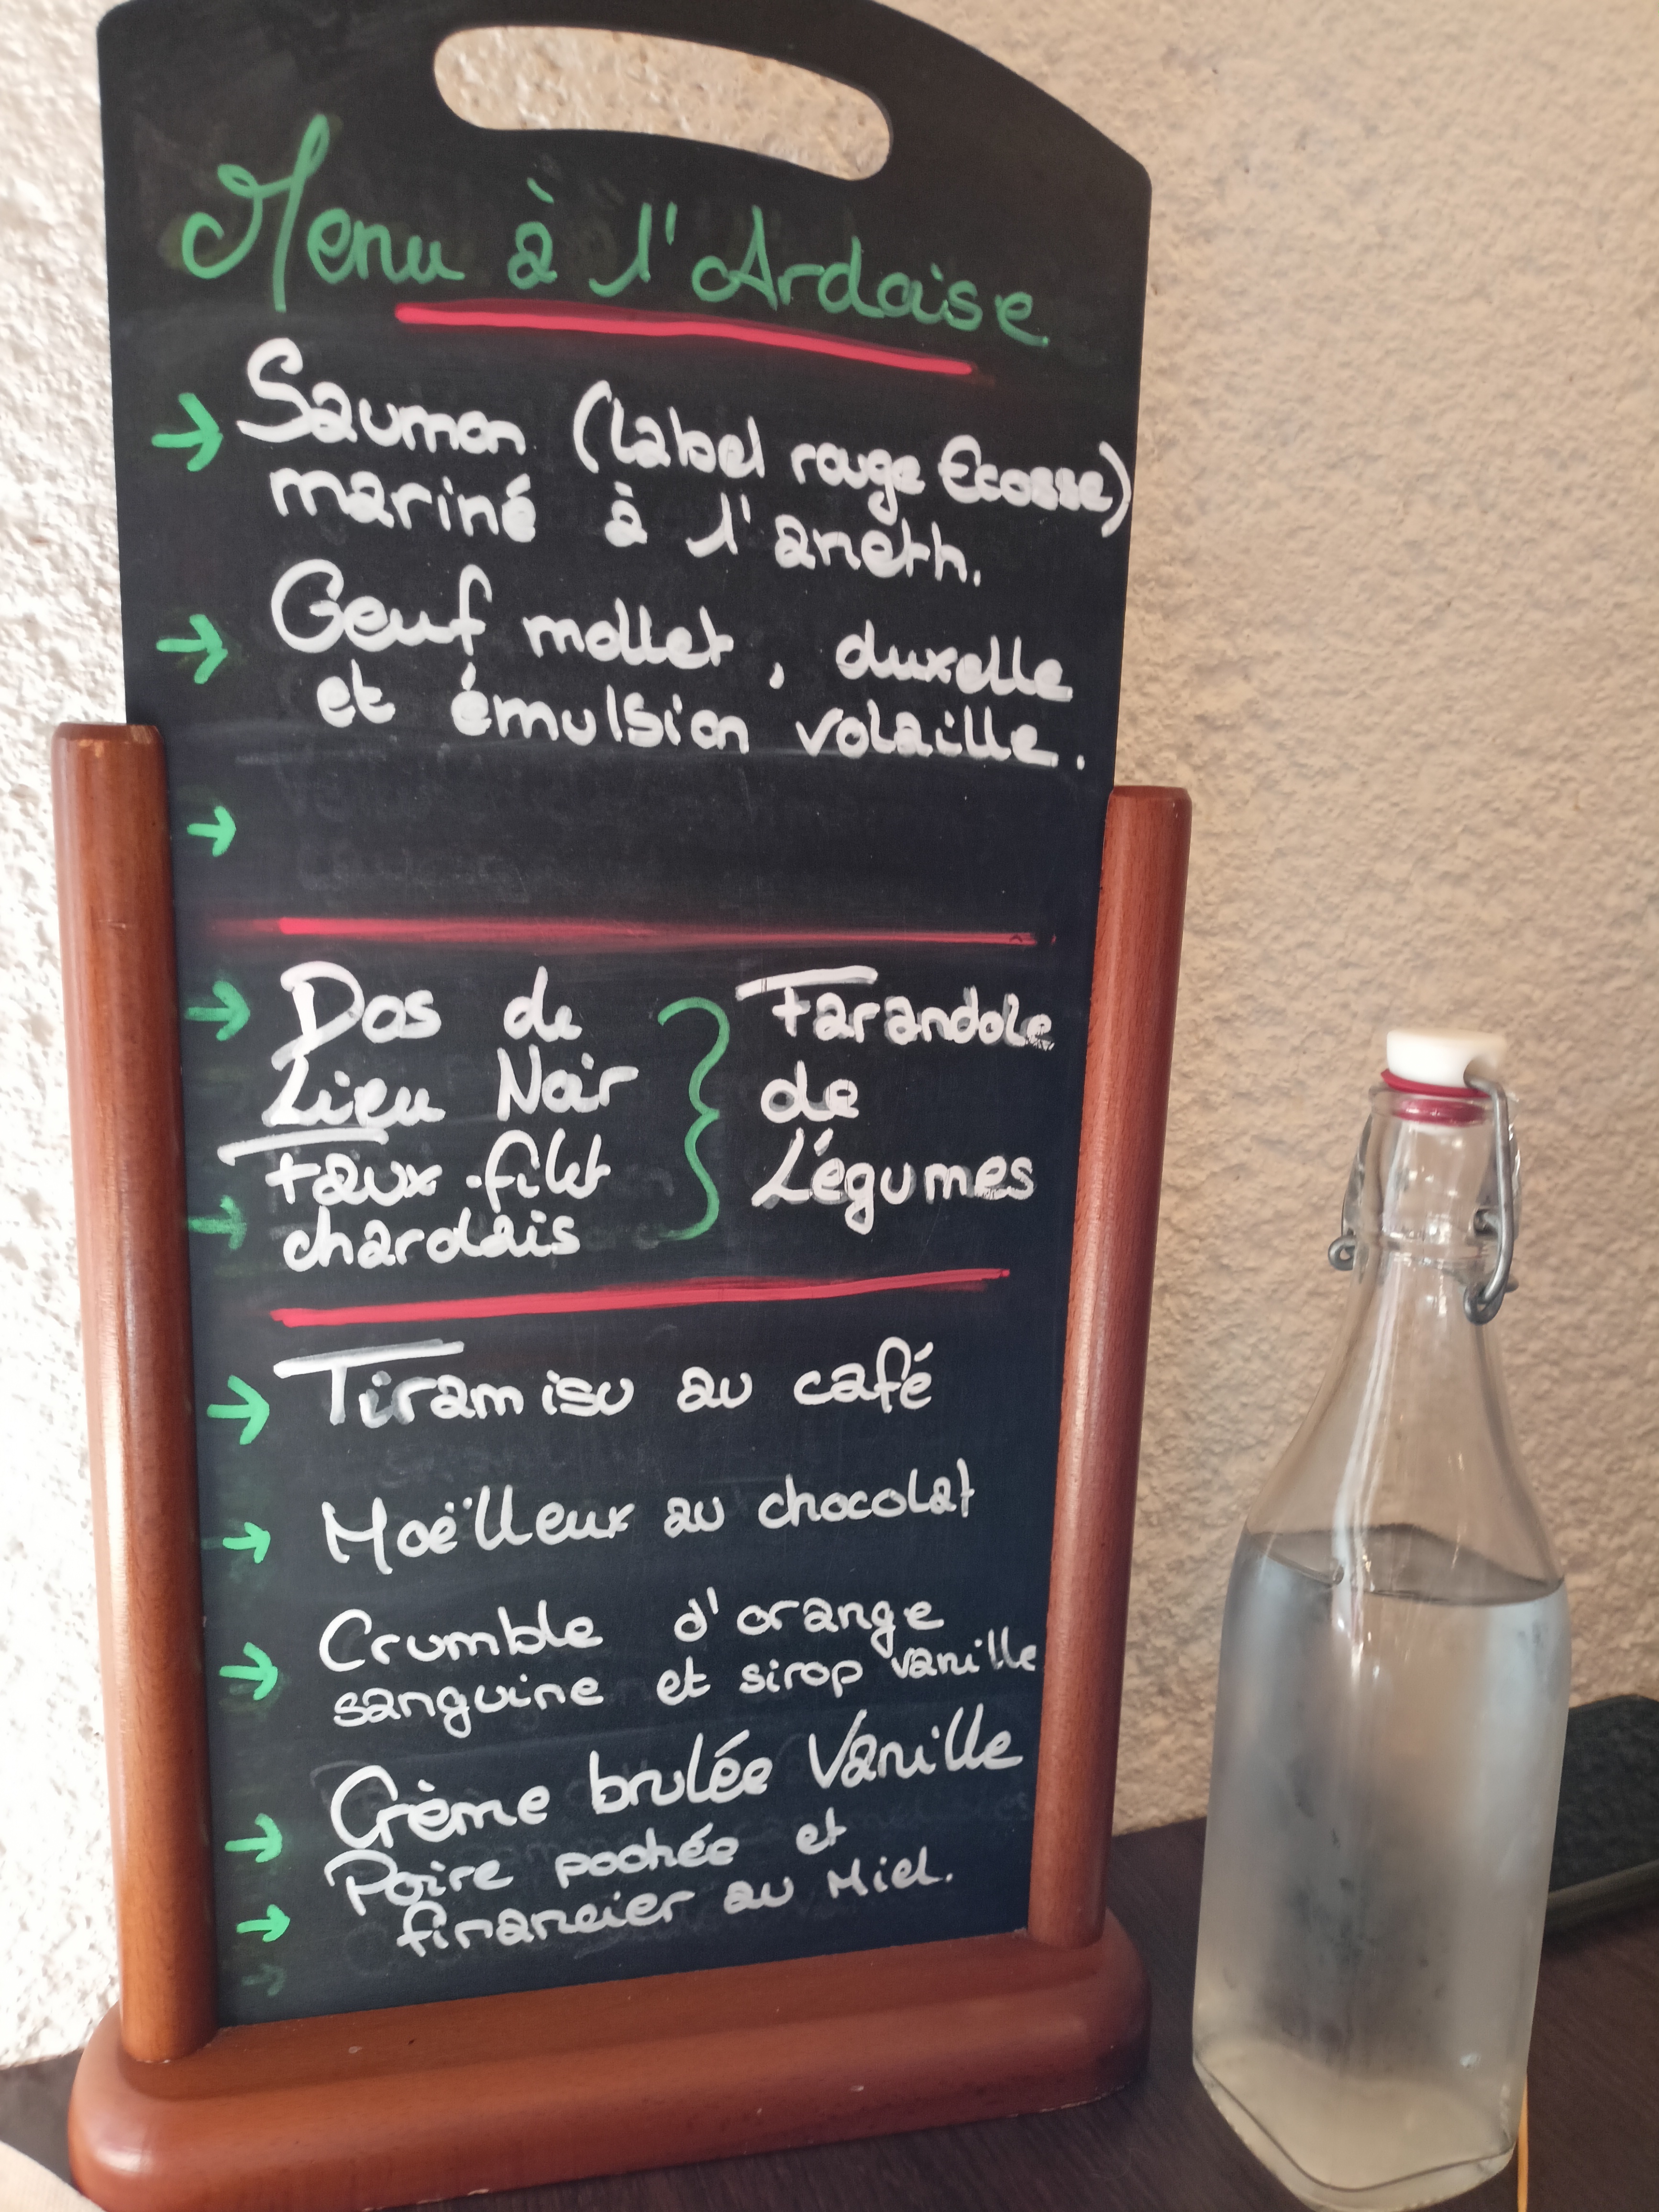 Menu à l'Ardoise
→ Saumon (label rouge Ecosse)
mariné à l'aneth.
→ Oeuf mollet, duxelle
et émulsion volaille.
→
→ Dos de
Lieu Noir
→ Faux-filet
charolais
} Farandole
de
Légumes
→ Tiramisu au café
→ Moëlleux au chocolat
→ Crumble d'orange
sanguine et sirop vanille
→ Crème brulée Vanille
→ Poire pochée et
financier au Miel.